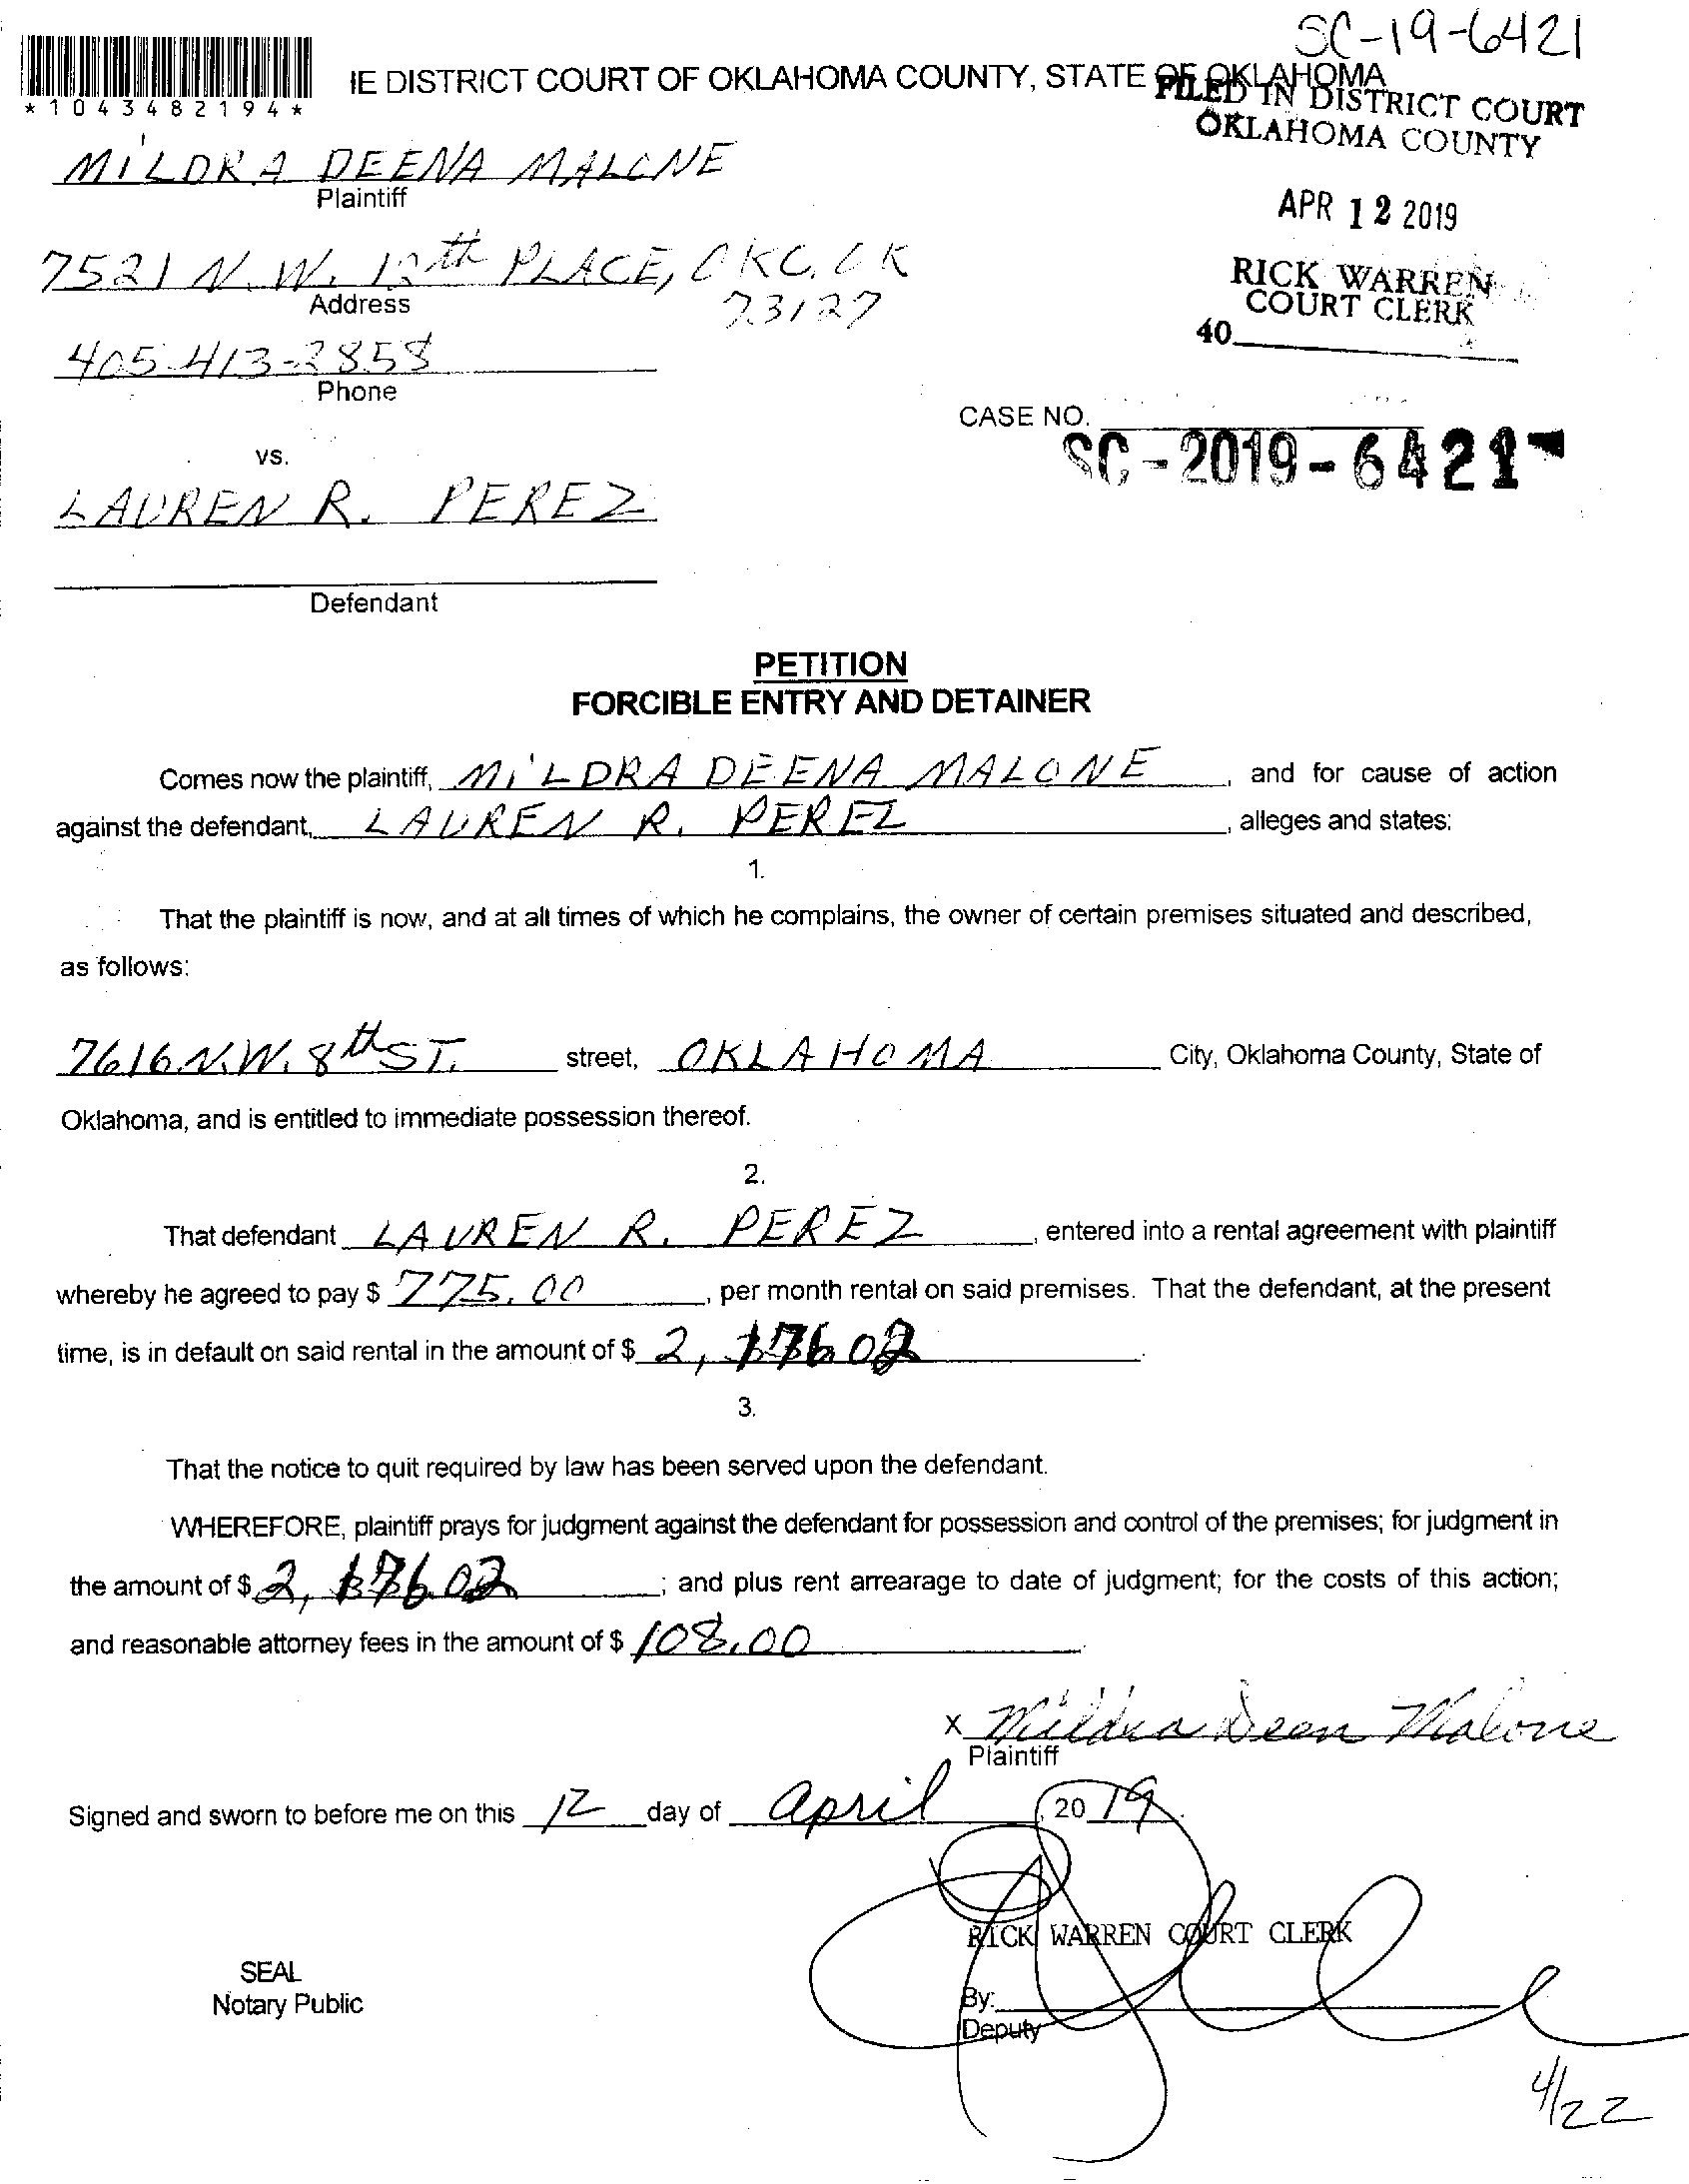 SC-19-6421
*1043482194*
IE DISTRICT COURT OF OKLAHOMA COUNTY, STATE OF OKLAHOMA
FILED IN DISTRICT COURT
OKLAHOMA COUNTY
MILDRA DEENA MALONE
Plaintiff
APR 12 2019
7521 N.W. 12th PLACE, OKC, OK
Address
73127
RICK WARREN
COURT CLERK
40
405-413-2858
Phone
CASE NO.
SC-2019-6421
vs.
LAUREN R. PEREZ
Defendant
PETITION
FORCIBLE ENTRY AND DETAINER
Comes now the plaintiff, MILDRA DEENA MALONE, and for cause of action
against the defendant, LAUREN R. PEREZ, alleges and states:
1.
That the plaintiff is now, and at all times of which he complains, the owner of certain premises situated and described,
as follows:
7616 N.W. 8th ST. street, OKLAHOMA City, Oklahoma County, State of
Oklahoma, and is entitled to immediate possession thereof.
2.
That defendant LAUREN R. PEREZ, entered into a rental agreement with plaintiff
whereby he agreed to pay $ 775.00, per month rental on said premises. That the defendant, at the present
time, is in default on said rental in the amount of $
3.
That the notice to quit required by law has been served upon the defendant.
WHEREFORE, plaintiff prays for judgment against the defendant for possession and control of the premises; for judgment in
the amount of $ ; and plus rent arrearage to date of judgment; for the costs of this action;
and reasonable attorney fees in the amount of $ 108.00
x Mildra Deena Malone
Plaintiff
Signed and sworn to before me on this 12 day of April, 2019.
RICK WARREN COURT CLERK
SEAL
Notary Public
By:
Deputy
4/22